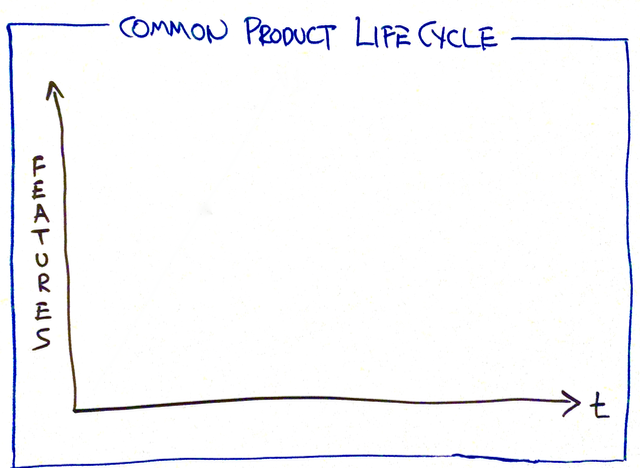 COMMON PRODUCT LIFE CYCLE
FEATURES
t